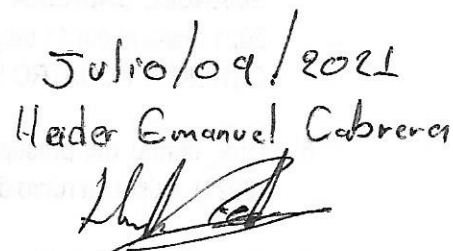 Julio/09/2021
Heider Emanuel Cabrera